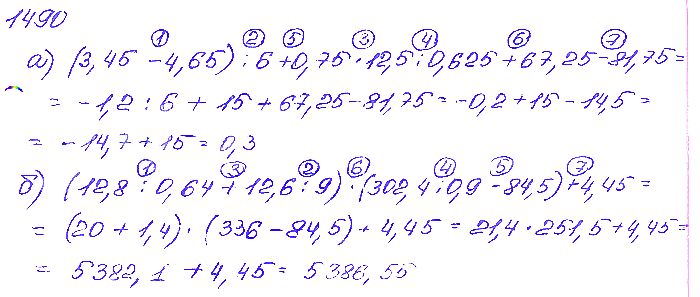 1490
① ② ⑤ ③ ④ ⑥ ⑦
а) (3,45 - 4,65) : 6 + 0,75 · 12,5 : 0,625 + 67,25 - 81,75 =
= -1,2 : 6 + 15 + 67,25 - 81,75 = -0,2 + 15 - 14,5 =
= -14,7 + 15 = 0,3
① ③ ② ⑥ ④ ⑤ ⑦
б) (12,8 : 0,64 + 12,6 : 9) · (302,4 : 0,9 - 84,5) + 4,45 =
= (20 + 1,4) · (336 - 84,5) + 4,45 = 21,4 · 251,5 + 4,45 =
= 5382,1 + 4,45 = 5386,55